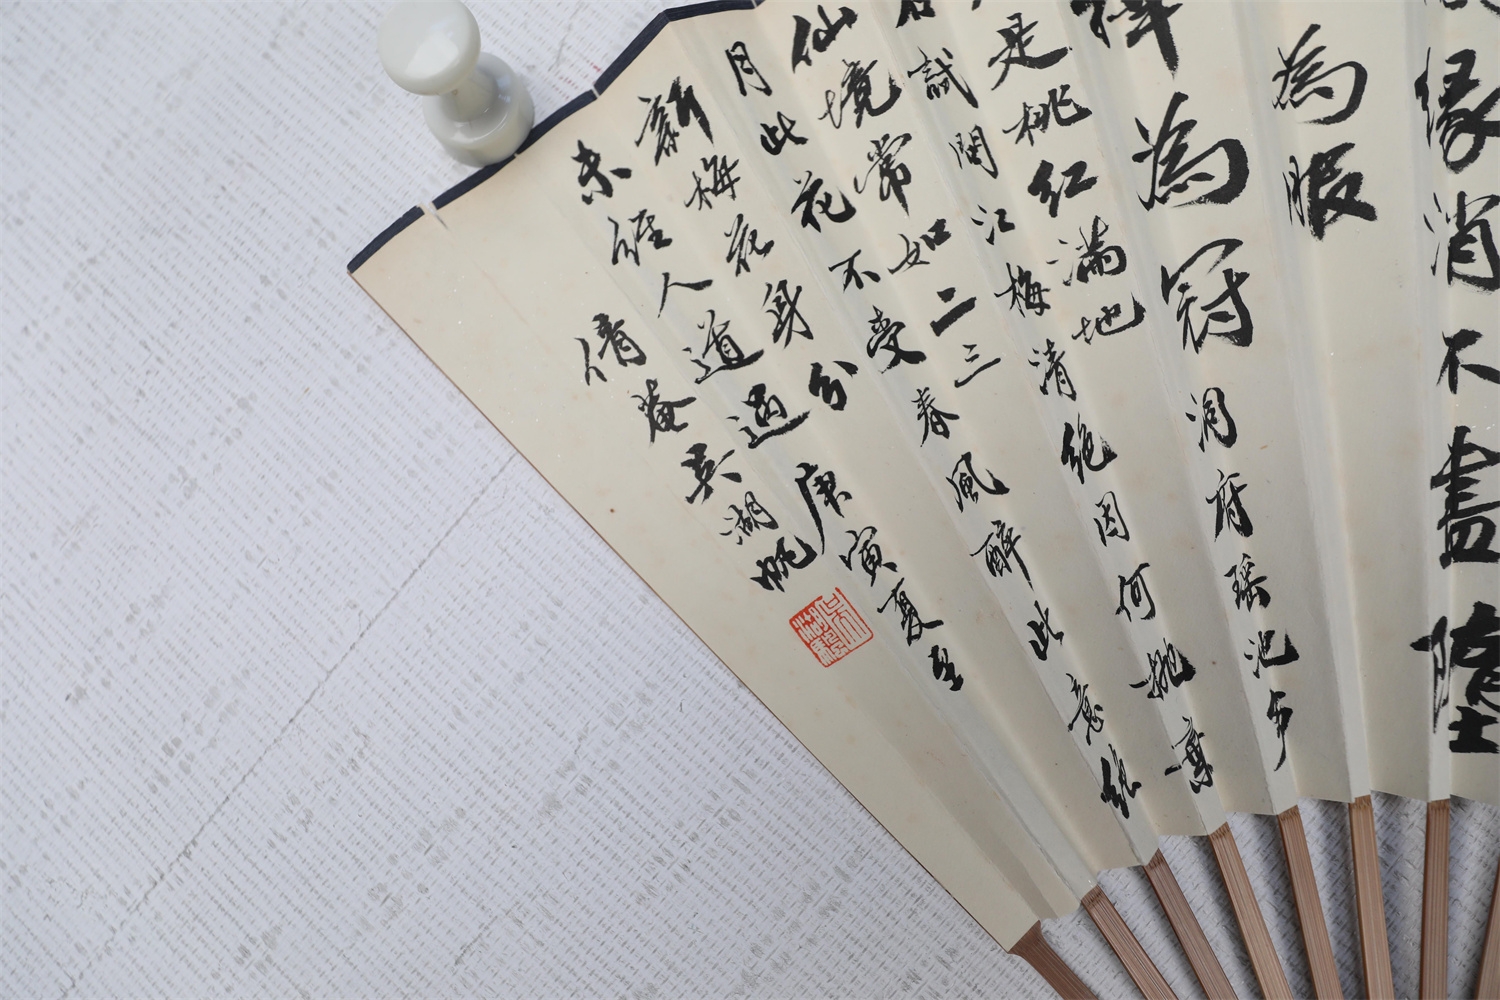 緣消不盡墮
為
為冠洞府瑤池步
是桃紅滿地
試問江梅清絕因何抛棄
仙境常如二三
月此花不受春風醉此意絕
新梅花身分
未經人道過庚寅夏至
倩菴吳湖帆